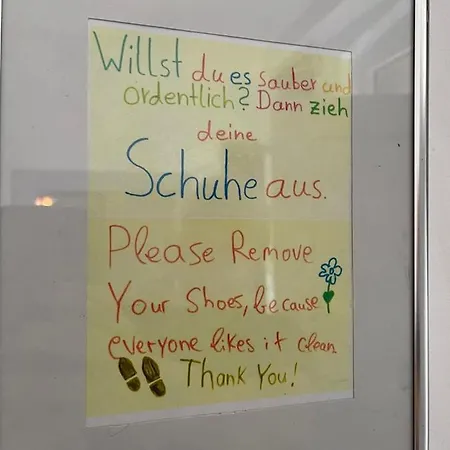 Willst du es sauber und
ordentlich? Dann zieh
deine
Schuhe aus.
Please Remove
Your Shoes, because
everyone likes it clean.
Thank You!